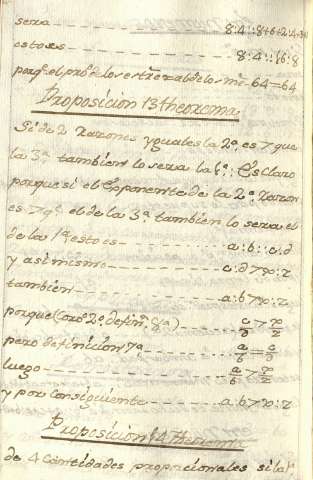 sera 8:4::8+6+2:4+3+1
esto es 8:4::16:8
porq.e el pro.to de los estre. val de los mº 64=64
Proposicion 13 theorema
Si de 2 razones yguales la 2ª es 7 que
la 3ª tambien lo sera la 1ª: Es claro
porque si el Exponente de la 2ª razon
es 7 q.e el de la 3ª tambien lo sera el
de la 1ª esto es a:b::c:d
y asimismo c:d 7 p:z
tambien a:b 7 p:z
porque
pero definicion 7ª a/b = c/d
luego
y por consiguiente a:b 7 p:z
Proposicion 14 theorema
de 4 Cantidades proporcionales si la 1ª